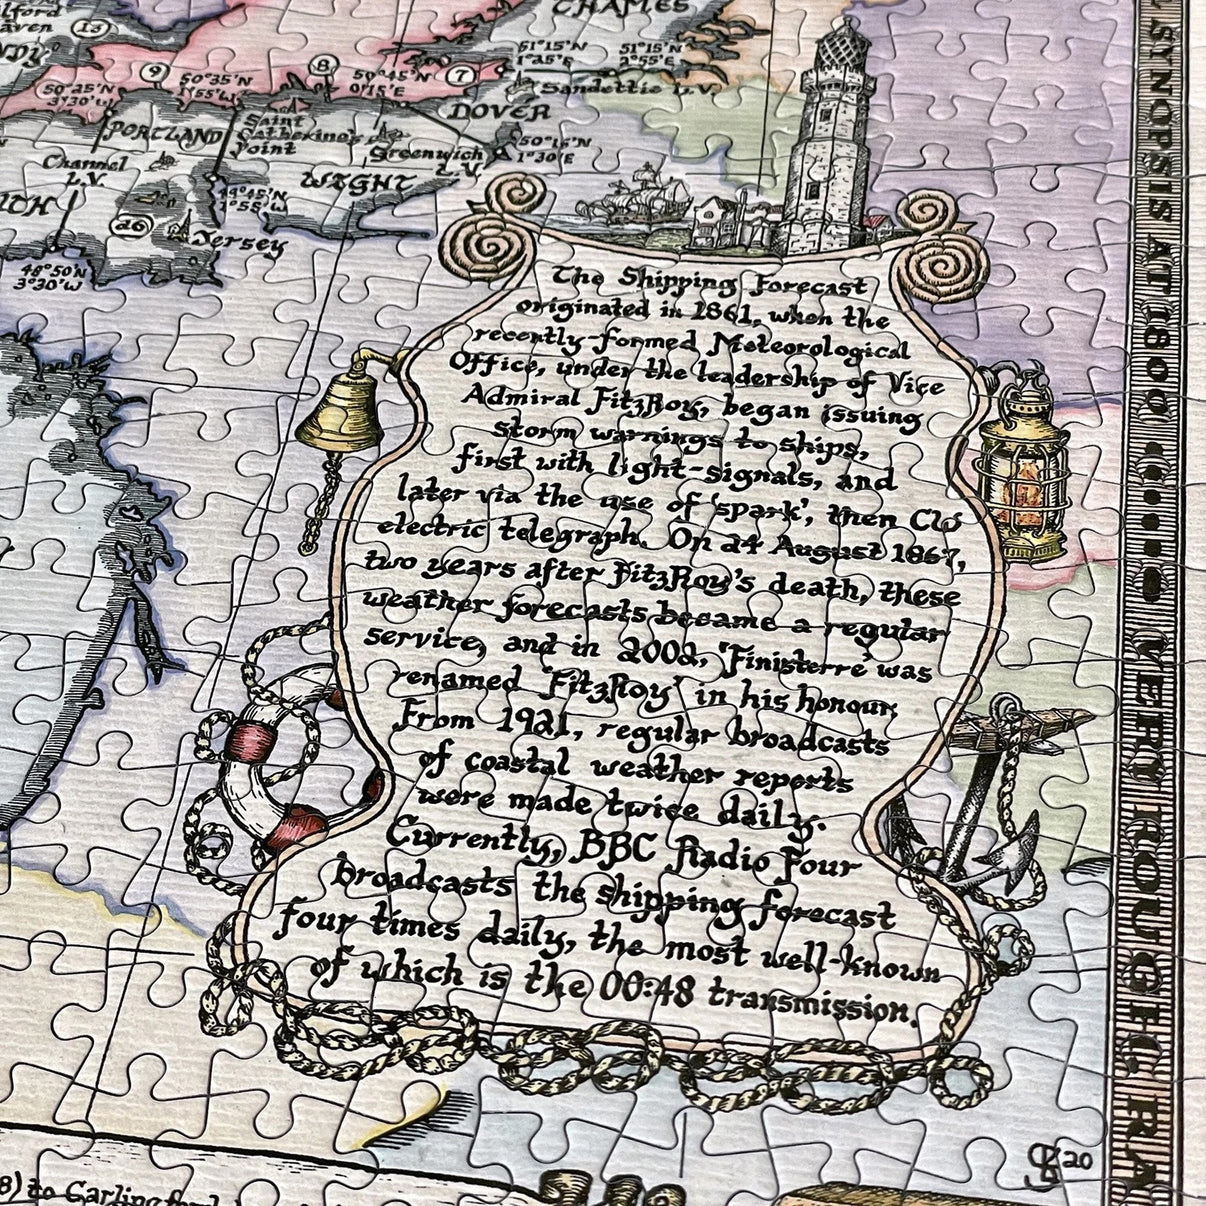 lford
aven
13
CHAMES
9
50°35'N
1°55'W
8
50°45'N
0°15'E
7
51°15'N
1°25'E
51°15'N
2°55'E
50°25'N
3°30'W
Sandettie L.V.
PORTLAND
DOVER
Saint
Catherine's
Point
Greenwich
L.V.
50°15'N
1°30'E
Channel
L.V.
WIGHT
49°45'N
1°55'W
26
Jersey
48°50'N
3°30'W
The Shipping Forecast
originated in 1861, when the
recently-formed Meteorological
Office, under the leadership of Vice
Admiral FitzRoy, began issuing
storm warnings to ships,
first with light-signals, and
later via the use of 'spark', then CW
electric telegraph. On 24 August 1867,
two years after FitzRoy's death, these
weather forecasts became a regular
service, and in 2002, 'Finisterre' was
renamed 'FitzRoy' in his honour.
From 1921, regular broadcasts
of coastal weather reports
were made twice daily.
Currently, BBC Radio Four
broadcasts the shipping forecast
four times daily, the most well-known
of which is the 00:48 transmission.
SYNOPSIS AT 1800
VERY ROUGH
RA
20
8) to Carlingford